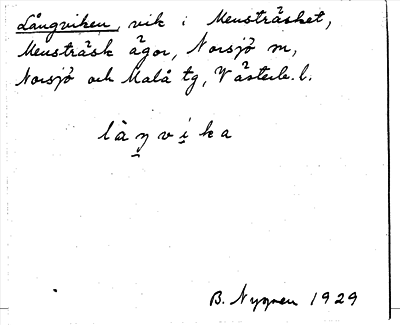 Långviken, vik i Mensträsket,
Mensträsk ägor, Norsjö sn,
Norsjö och Malå tg, Västerb. l.
låŋvika
B. Nygren 1929